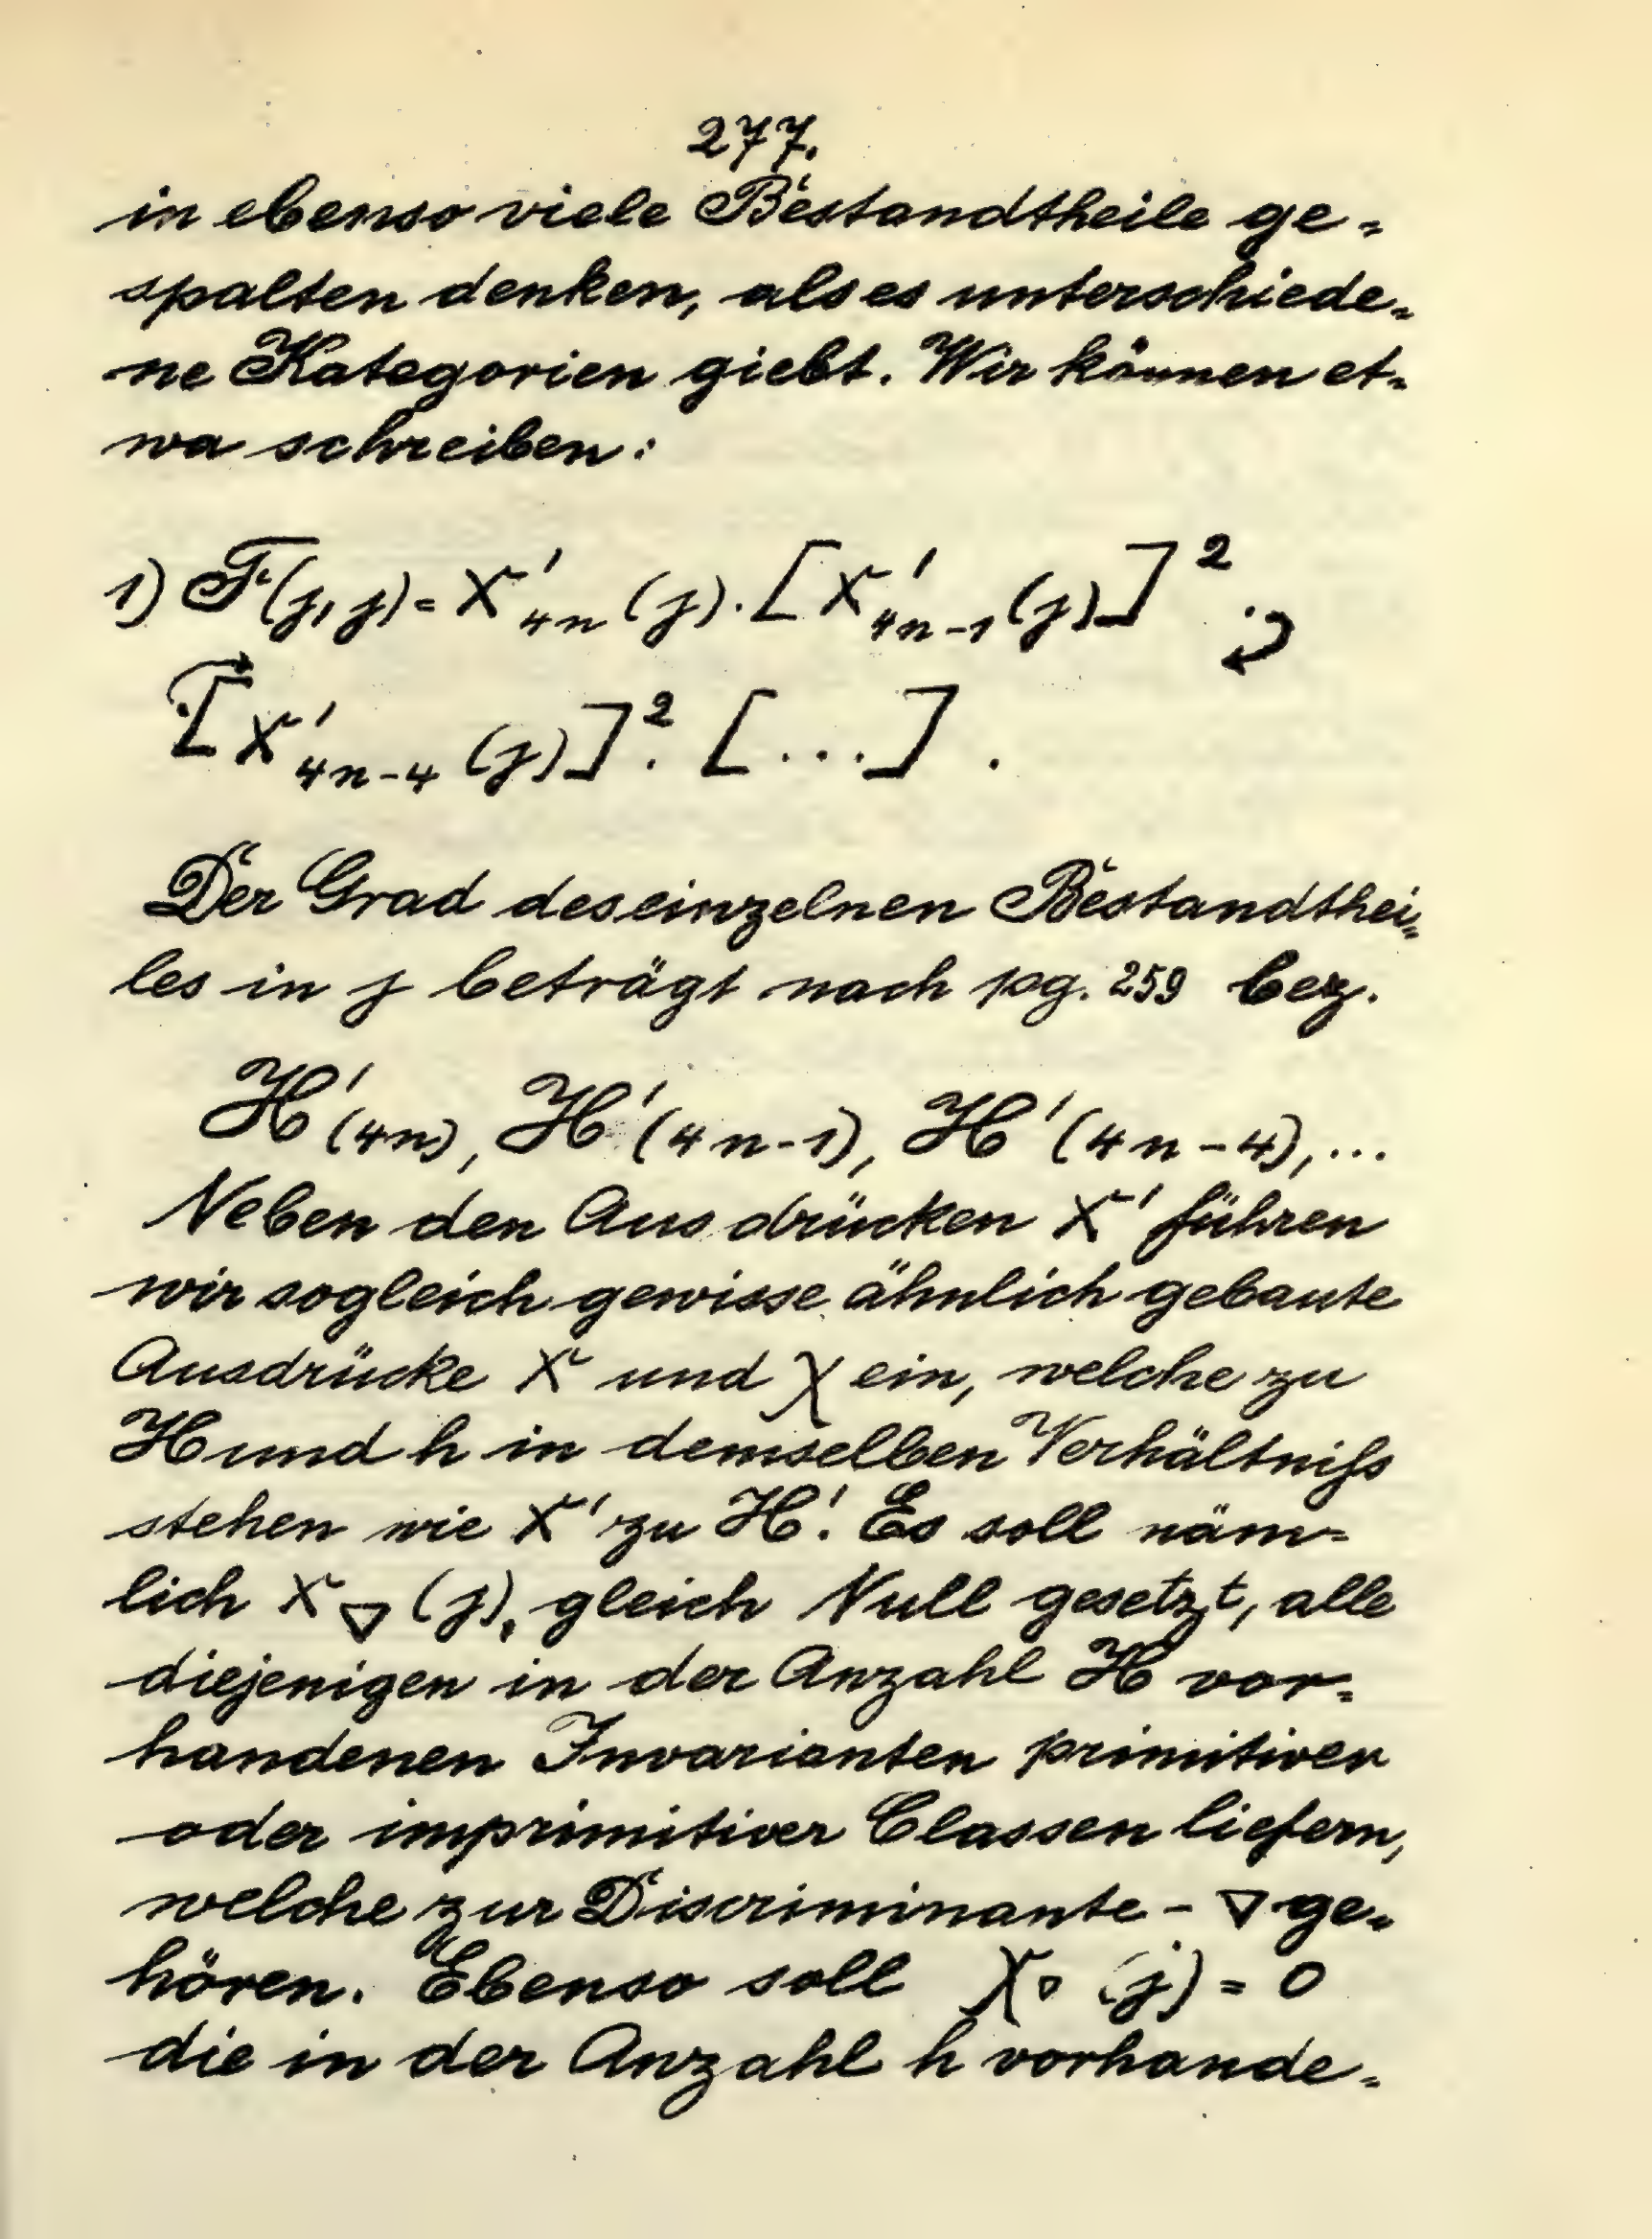 277.
in ebenso viele Bestandtheile ge=
spalten denken, als es unterschiede=
ne Kategorien giebt. Wir können et=
wa schreiben:
1) F(j, j) = X'₄ₙ (j) · [X'₄ₙ₋₁ (j)]² ·
· [X'₄ₙ₋₄ (j)]² · [...] .
Der Grad des einzelnen Bestandthei=
les in j beträgt nach pg. 259 bez.
H'(4n), H'(4n-1), H'(4n-4), ...
Neben den Ausdrücken X' führen
wir sogleich gewisse ähnlich gebaute
Ausdrücke X und χ ein, welche zu
H und h in demselben Verhältniſs
stehen wie X' zu H'. Es soll näm=
lich X▽ (j), gleich Null gesetzt, alle
diejenigen in der Anzahl H vor=
handenen Invarianten primitiver
oder imprimitiver Classen liefern,
welche zur Discriminante - ▽ ge=
hören. Ebenso soll χ▽ (j) = 0
die in der Anzahl h vorhande=